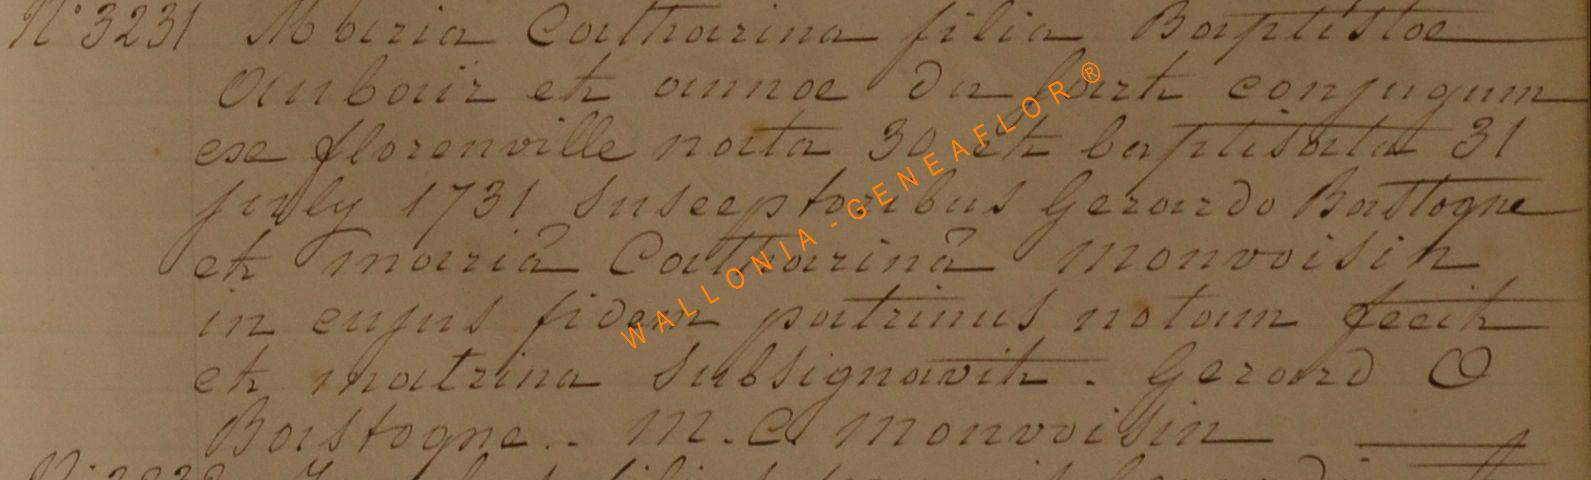 N° 3231 Maria Catharina filia Baptistae
Aubair et annae du bart conjugum
ex florenville nata 30 et baptisata 31
july 1731 susceptoribus Gerardo Bastogne
et maria Catharina monvoisin
in cujus fidem patrinus notam fecit
et matrina subsignavit. Gerard O
Bastogne.. M. C. monvoisin
WALLONIA - GENEAFLOR ®